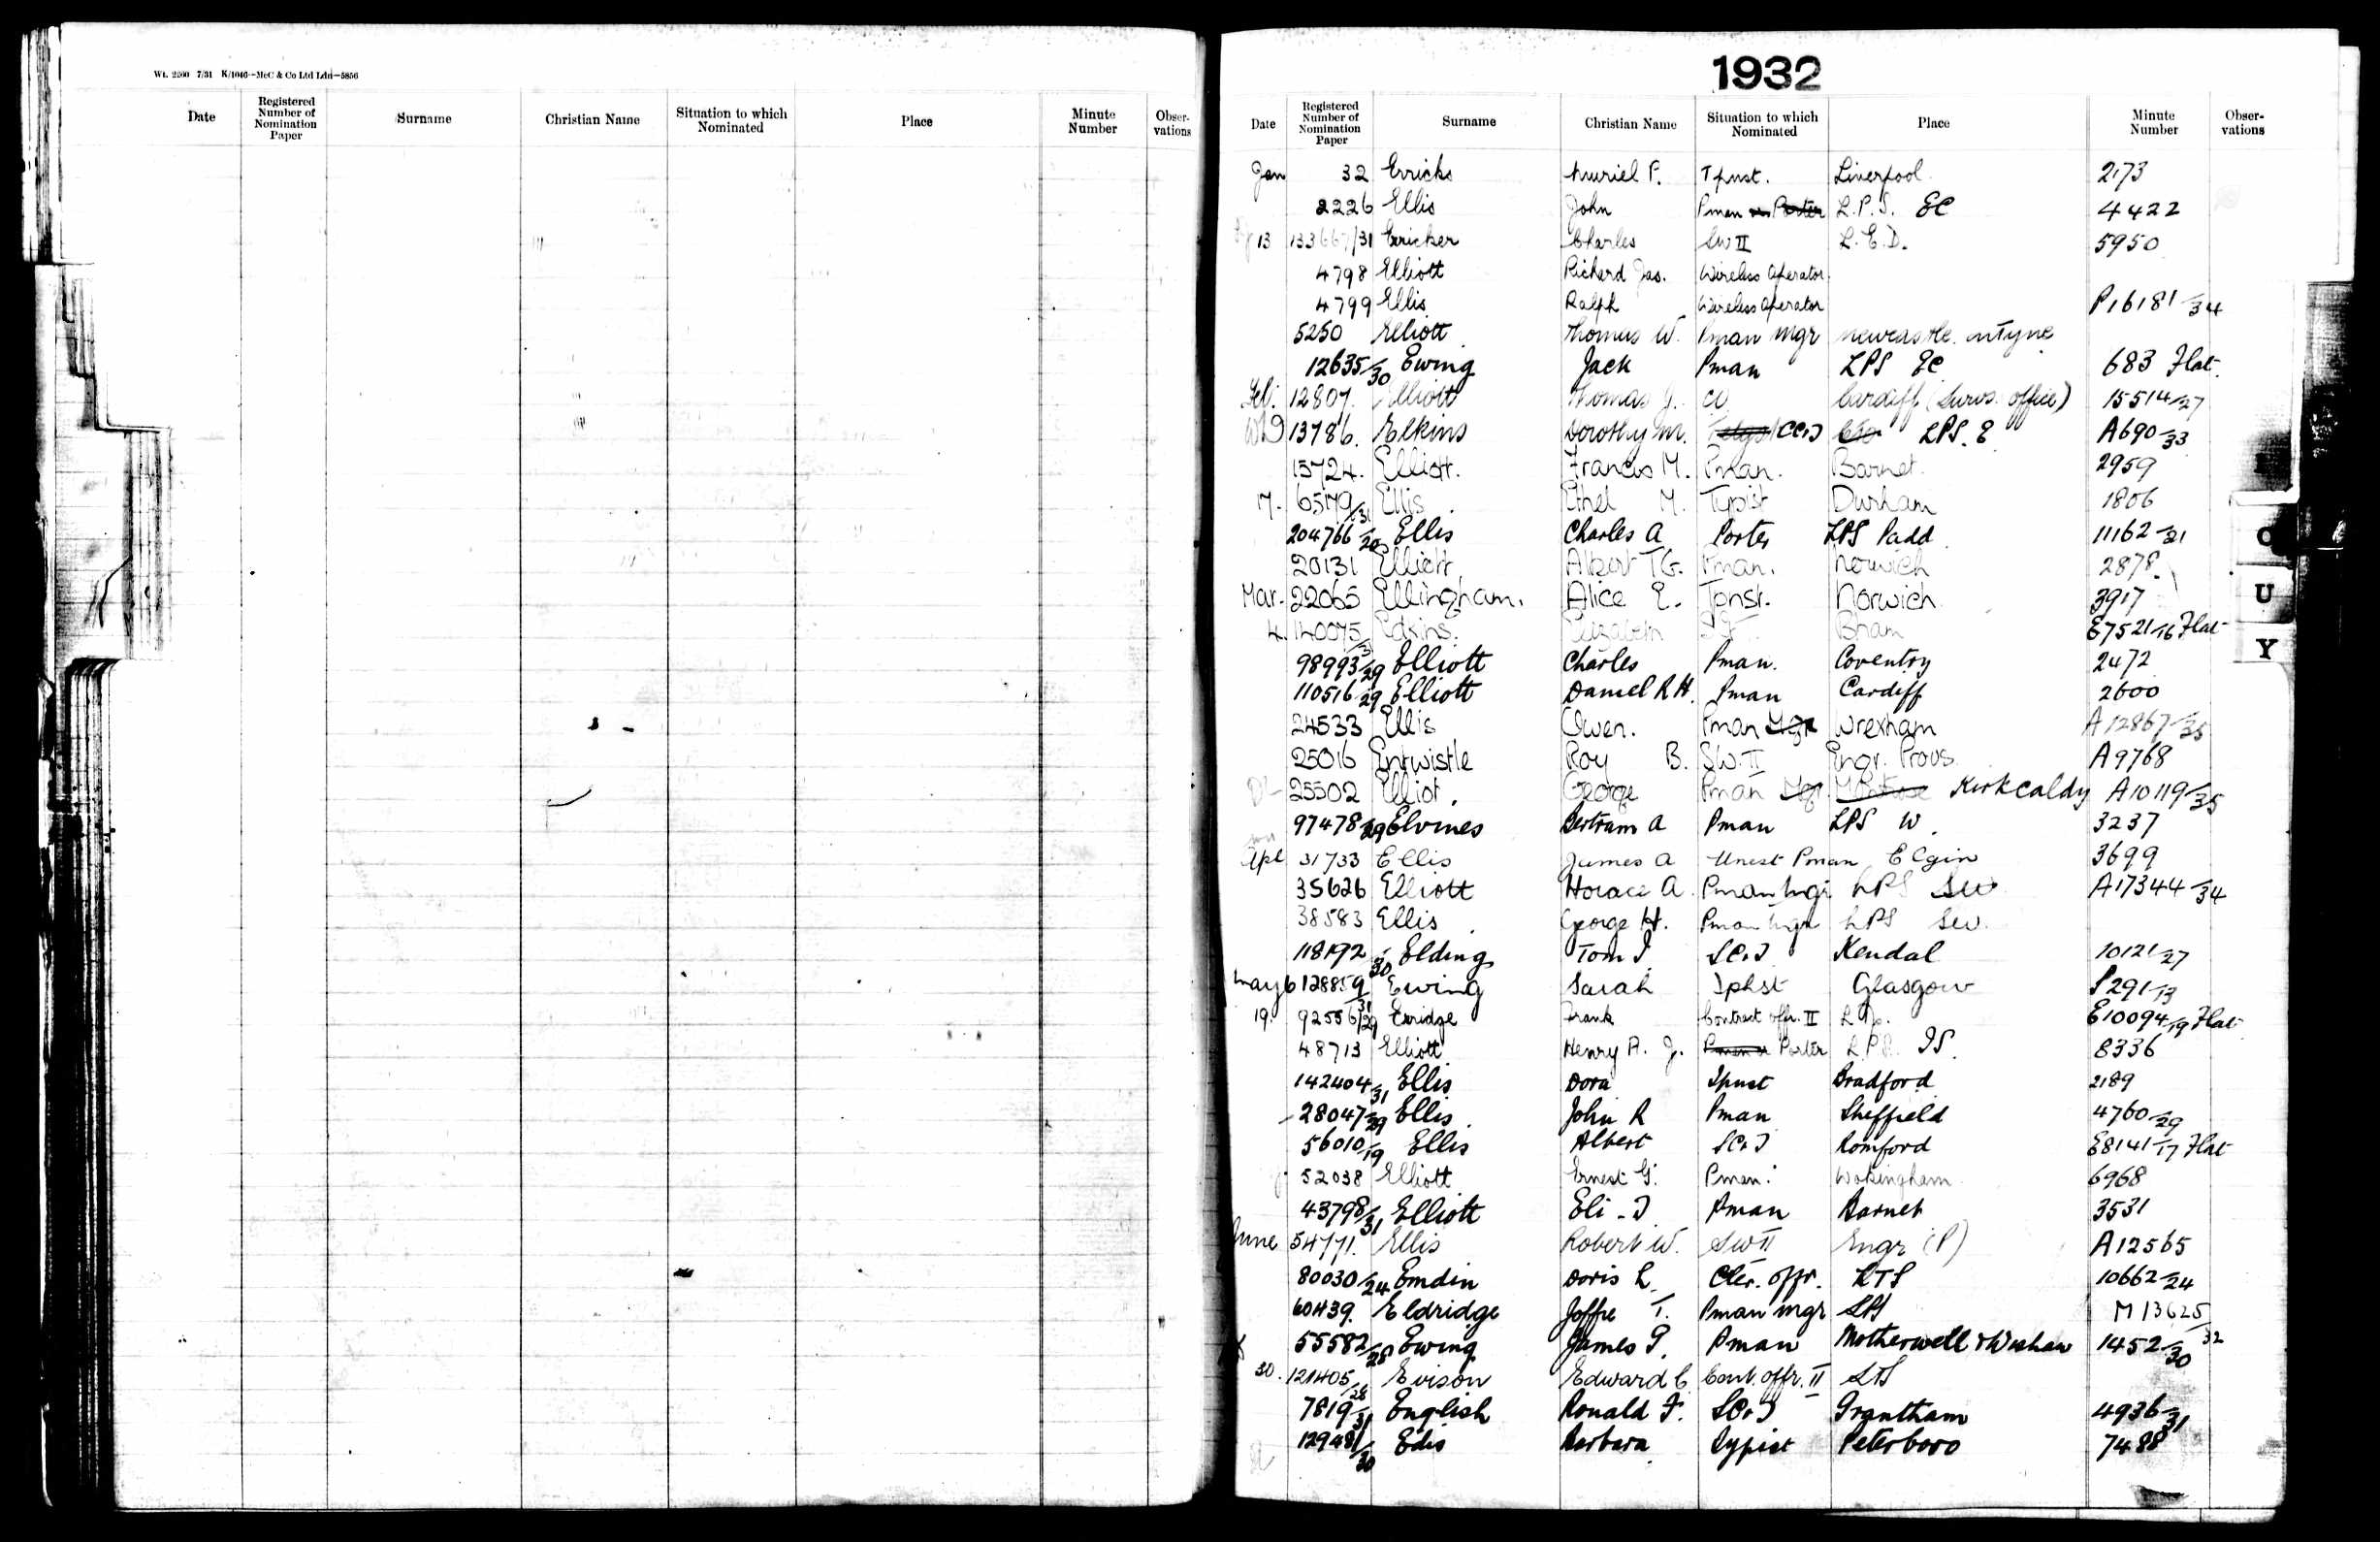 Wt. 2560 7/31 K/1046—McC & Co Ltd Ldn—5856
Date Registered Number of Nomination Paper Surname Christian Name Situation to which Nominated Place Minute Number Obser-vations
1932
Date Registered Number of Nomination Paper Surname Christian Name Situation to which Nominated Place Minute Number Obser-vations
Jan 32 Erricks Muriel P. Tpnst. Liverpool 2173
2226 Ellis John Pman or Porter L.P.S. EC 4422
13 133667/31 Erricker Charles SW II L.E.D. 5950
4798 Elliott Richard Jas. Wireless Operator.
4799 Ellis Ralph Wireless Operator P16181/34
5250 Elliott Thomas W. Pman Mgr Newcastle onTyne
12635/30 Ewing Jack Pman LPS EC 683 Flat.
Feb. 12807. Elliott Thomas J. CO Cardiff (Survs. office) 15514/27
13786. Elkins Dorothy M. CC&T LPS. E A690/33
15724. Elliott. Francis M. Pman. Barnet. 2959
17. 65179/31 Ellis Ethel M. Typist Durham 1806
204766/20 Ellis Charles A Porter LPS Padd 11162/21
20131 Elliott Albert TG. Pman. Norwich 2878.
Mar. 22065 Ellingham. Alice E. Tpnst. Norwich 3917
4. 140075 Elizabeth Bham E7521/16 Flat
98993/29 Elliott Charles Pman. Coventry 2472
110516/29 Elliott Daniel R H. Pman Cardiff 2600
24533 Ellis Owen. Pman Mgr Wrexham A12867/35
25016 Entwistle Roy B. SW.II Engr. Provs. A9768
25502 Elliot. George Pman Mgr. Montrose Kirkcaldy A10119/35
97478/29 Elvines Bertram A Pman LPS W. 3237
Apl 31733 Ellis James A Unest Pman Elgin 3699
35626 Elliott Horace A. Pman Mgr LPS SW A17344/34
38583 Ellis George H. Pman Mgr LPS SW.
118192/30 Elding Tom I SC&T Kendal 10121/27
May 6 128859/31 Ewing Sarah Tphst Glasgow P291/13
19. 92556/29 Erridge Frank Contract offr. II E10094/19 Flat
48713 Elliott Henry A. J. Pman or Porter LPS. IS. 8336
142404/31 Ellis Dora Tpnst Bradford 2189
28047/29 Ellis. John R Pman Sheffield 4760/29
56010/19 Ellis Albert SC&T Romford E8141/17 Flat
52038 Elliott Ernest G. Pman. Wokingham 6968
43798/31 Elliott Eli - T Pman Barnet 3531
June 54771. Ellis Robert W. SW II Engr (P) A12565
80030/24 Emdin Doris L. Cler. offr. LTS 10662/24
60439. Eldridge Joffre T. Pman Mgr LPS M13625/32
55582/28 Ewing James P. Pman Motherwell & Wishaw 1452/30
30. 121405/28 Evison Edward C. Cont. offr. II LTS
7819/31 English Ronald F. SC&T Grantham 4936/31
12948/30 Edis Barbara Typist Peterboro 7488
C
U
Y